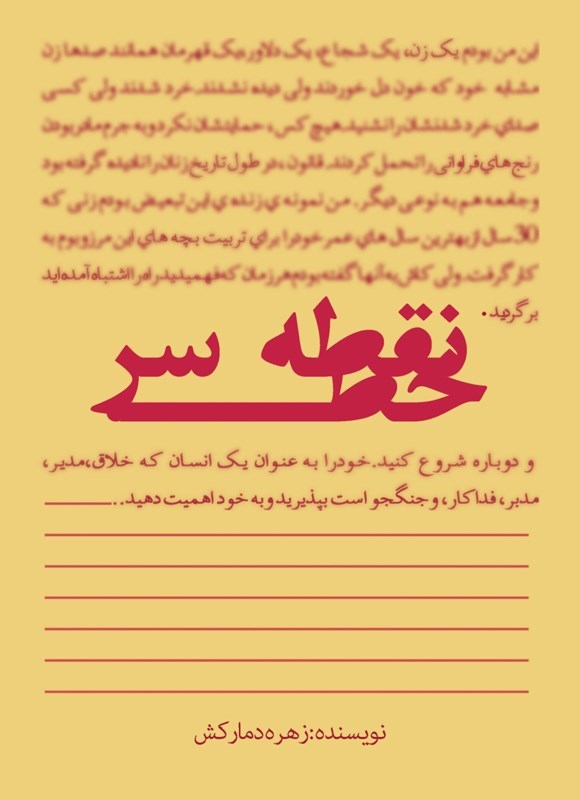 این من بودم یک زن، یک شجاع، یک دلاور،یک قهرمان همانند صدها زن
مشابه خود که خون دل خوردند ولی دیده نشدند.خرد شدند ولی کسی
صدای خرد شدنشان را نشنید.هیچ کس، حمایتشان نکرد و به جرم مادر بودن
رنج های فراوانی را تحمل کردند. قانون، در طول تاریخ زنان را نادیده گرفته بود
و جامعه هم به نوعی دیگر. من نمونه ی زنده ی این تبعیض بودم زنی که
30 سال از بهترین سال های عمر خود را برای تربیت بچه های این مرز و بوم به
کار گرفت. ولی کاش به آنها گفته بودم هر زمان که فهمیدید راه را اشتباه آمده اید
برگردید.
نقطه سر
خط
و دوباره شروع کنید.خودرا به عنوان یک انسان که خلاق،مدیر،
مدبر، فداکار، و جنگجو است بپذیرید و به خود اهمیت دهید..
نویسنده:زهره دمارکش